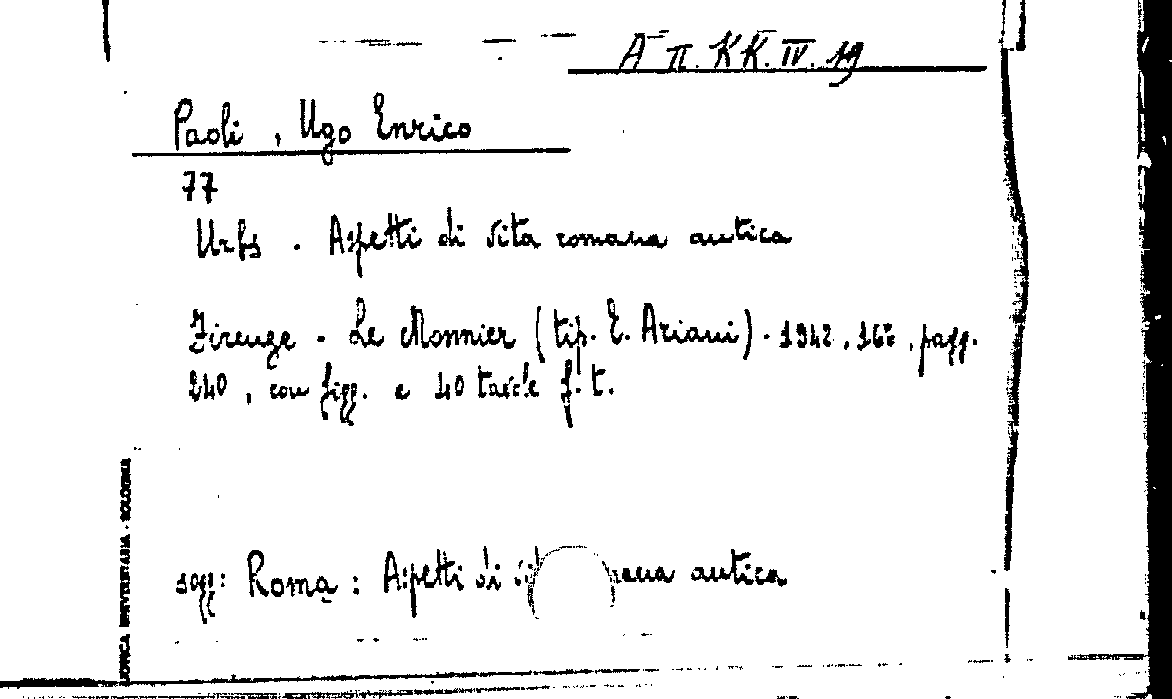 A π. KK. IV. 19
Paoli , Ugo Enrico
77
Urbs . Aspetti di vita romana antica
Firenze - Le Monnier (tip. E. Ariani) - 1942 , 16º , pagg.
240 , con figg. e 40 tavole f. t.
sogg: Roma : Aspetti di antica
BOLOGNA